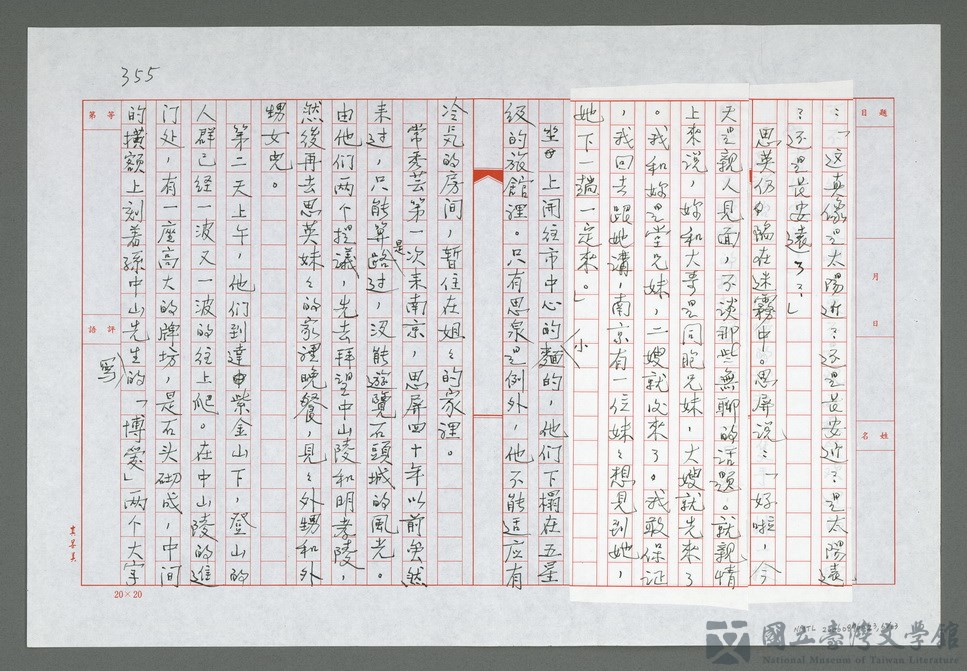 355
題目
月 日
姓名
：「这真像是太陽近？还是長安近？是太陽遠
？还是長安遠？？」
思英仍陷在迷霧中。思屏说：「好啦，今
天是親人見面，不谈那些無聊的话題。就親情
上來说，妳和大哥是同胞兄妹，大嫂就先來了
。我和妳是堂兄妹，二嫂就後來了。我敢保证
，我回去跟她講，南京有一位妹々想見到她，
她下一趟一定來。」
坐上开往市中心的小麵的，他们下榻在五星
级的旅館裡。只有思泉是例外，他不能适应有
冷気的房间，暫住在姐々的家裡。
常秀芸第一次来南京，思屏四十年以前虽然
来过，只能算是路过，没能遊覽石頭城的風光。
由他们两个提議，先去拜望中山陵和明孝陵，
然後再去思英妹々的家裡晚餐，見々外甥和外
甥女兜。
第二天上午，他们到達紫金山下，登山的
人群已经一波又一波的往上爬。在中山陵的進
门处，有一座高大的牌坊，是石头砌成，中间
的横額上刻着孫中山先生寫的「博爱」两个大字
等第
評語
20×20
國立臺灣文學館
National Museum of Taiwan Literature